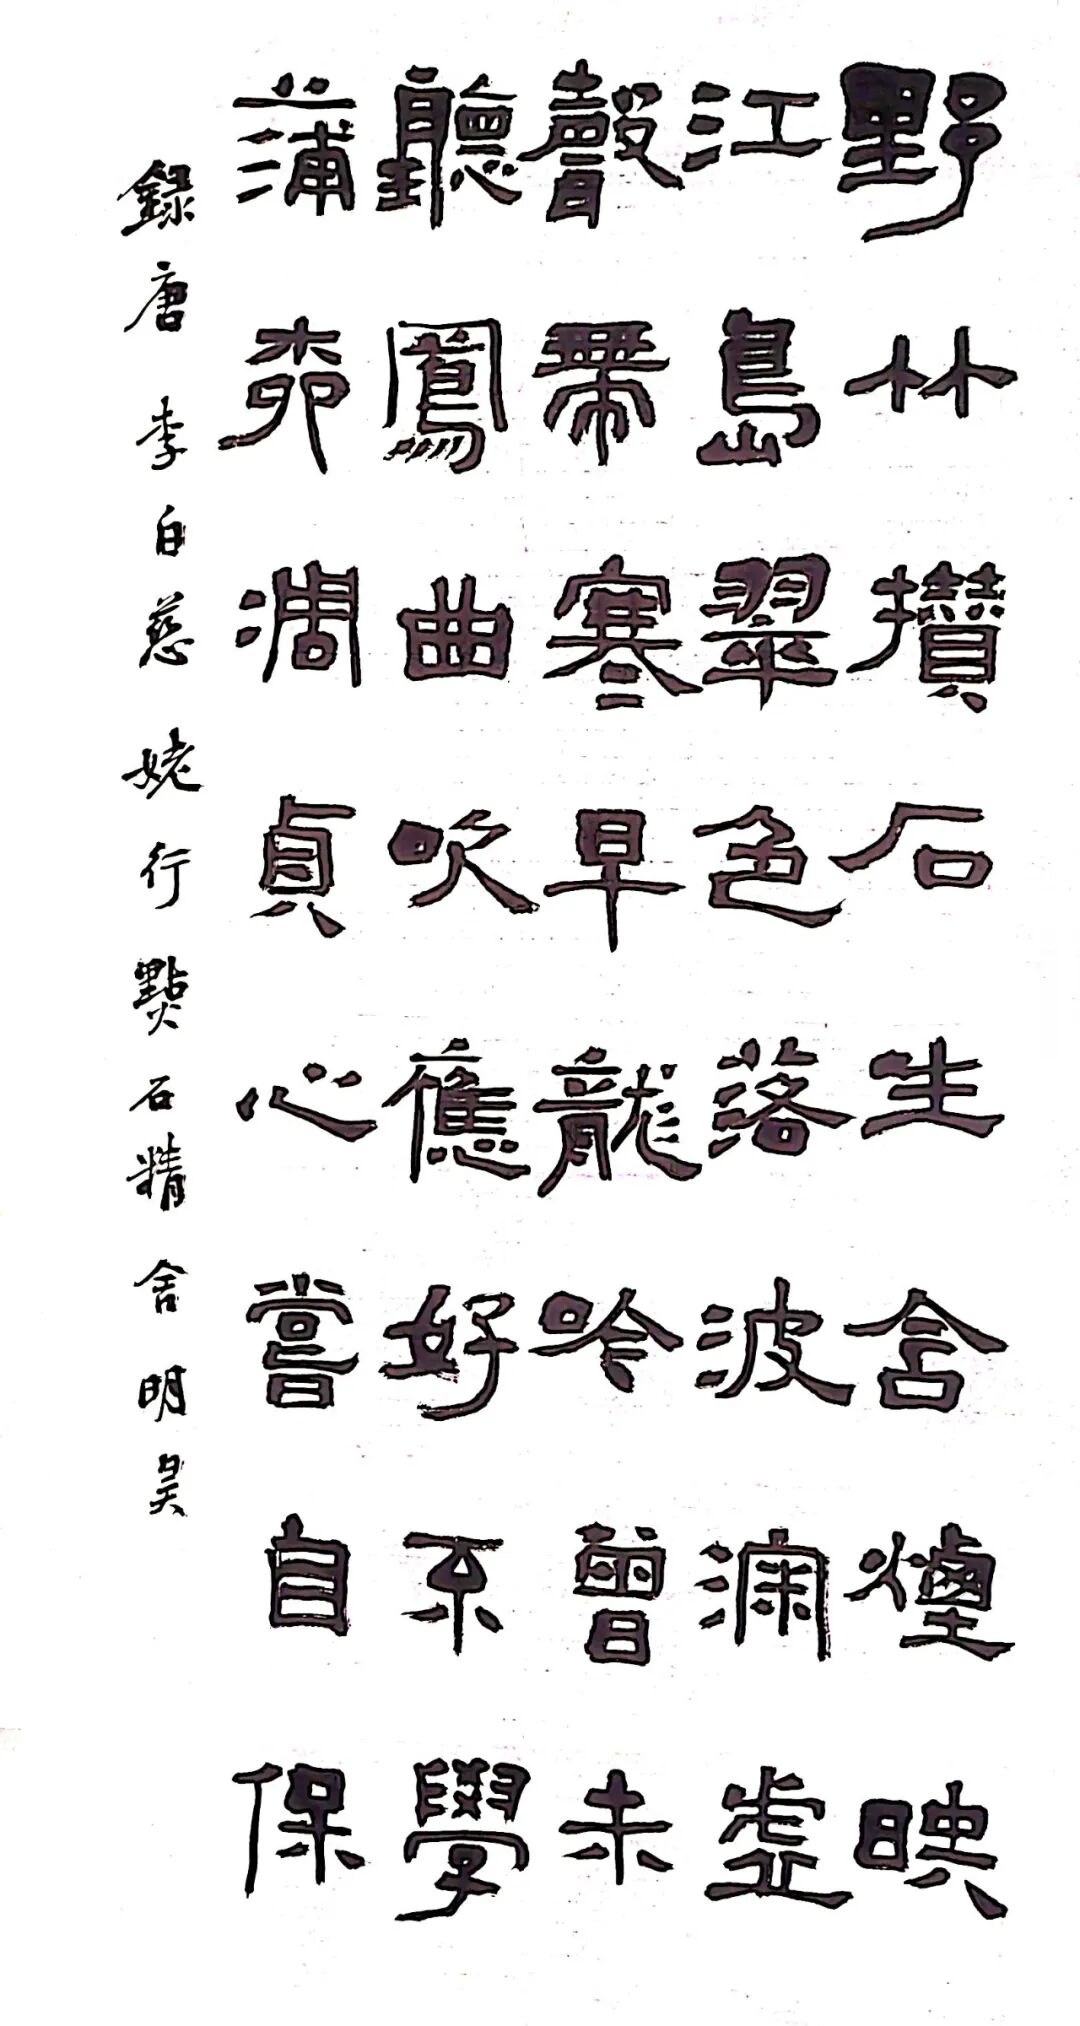 野竹攢石生含煙映
江島翠色落波深虛
聲帶寒早龍吟曾未
聽鳳曲吹應好不學
蒲柳凋貞心嘗自保
錄唐李白慈姥行點石精舍明昊